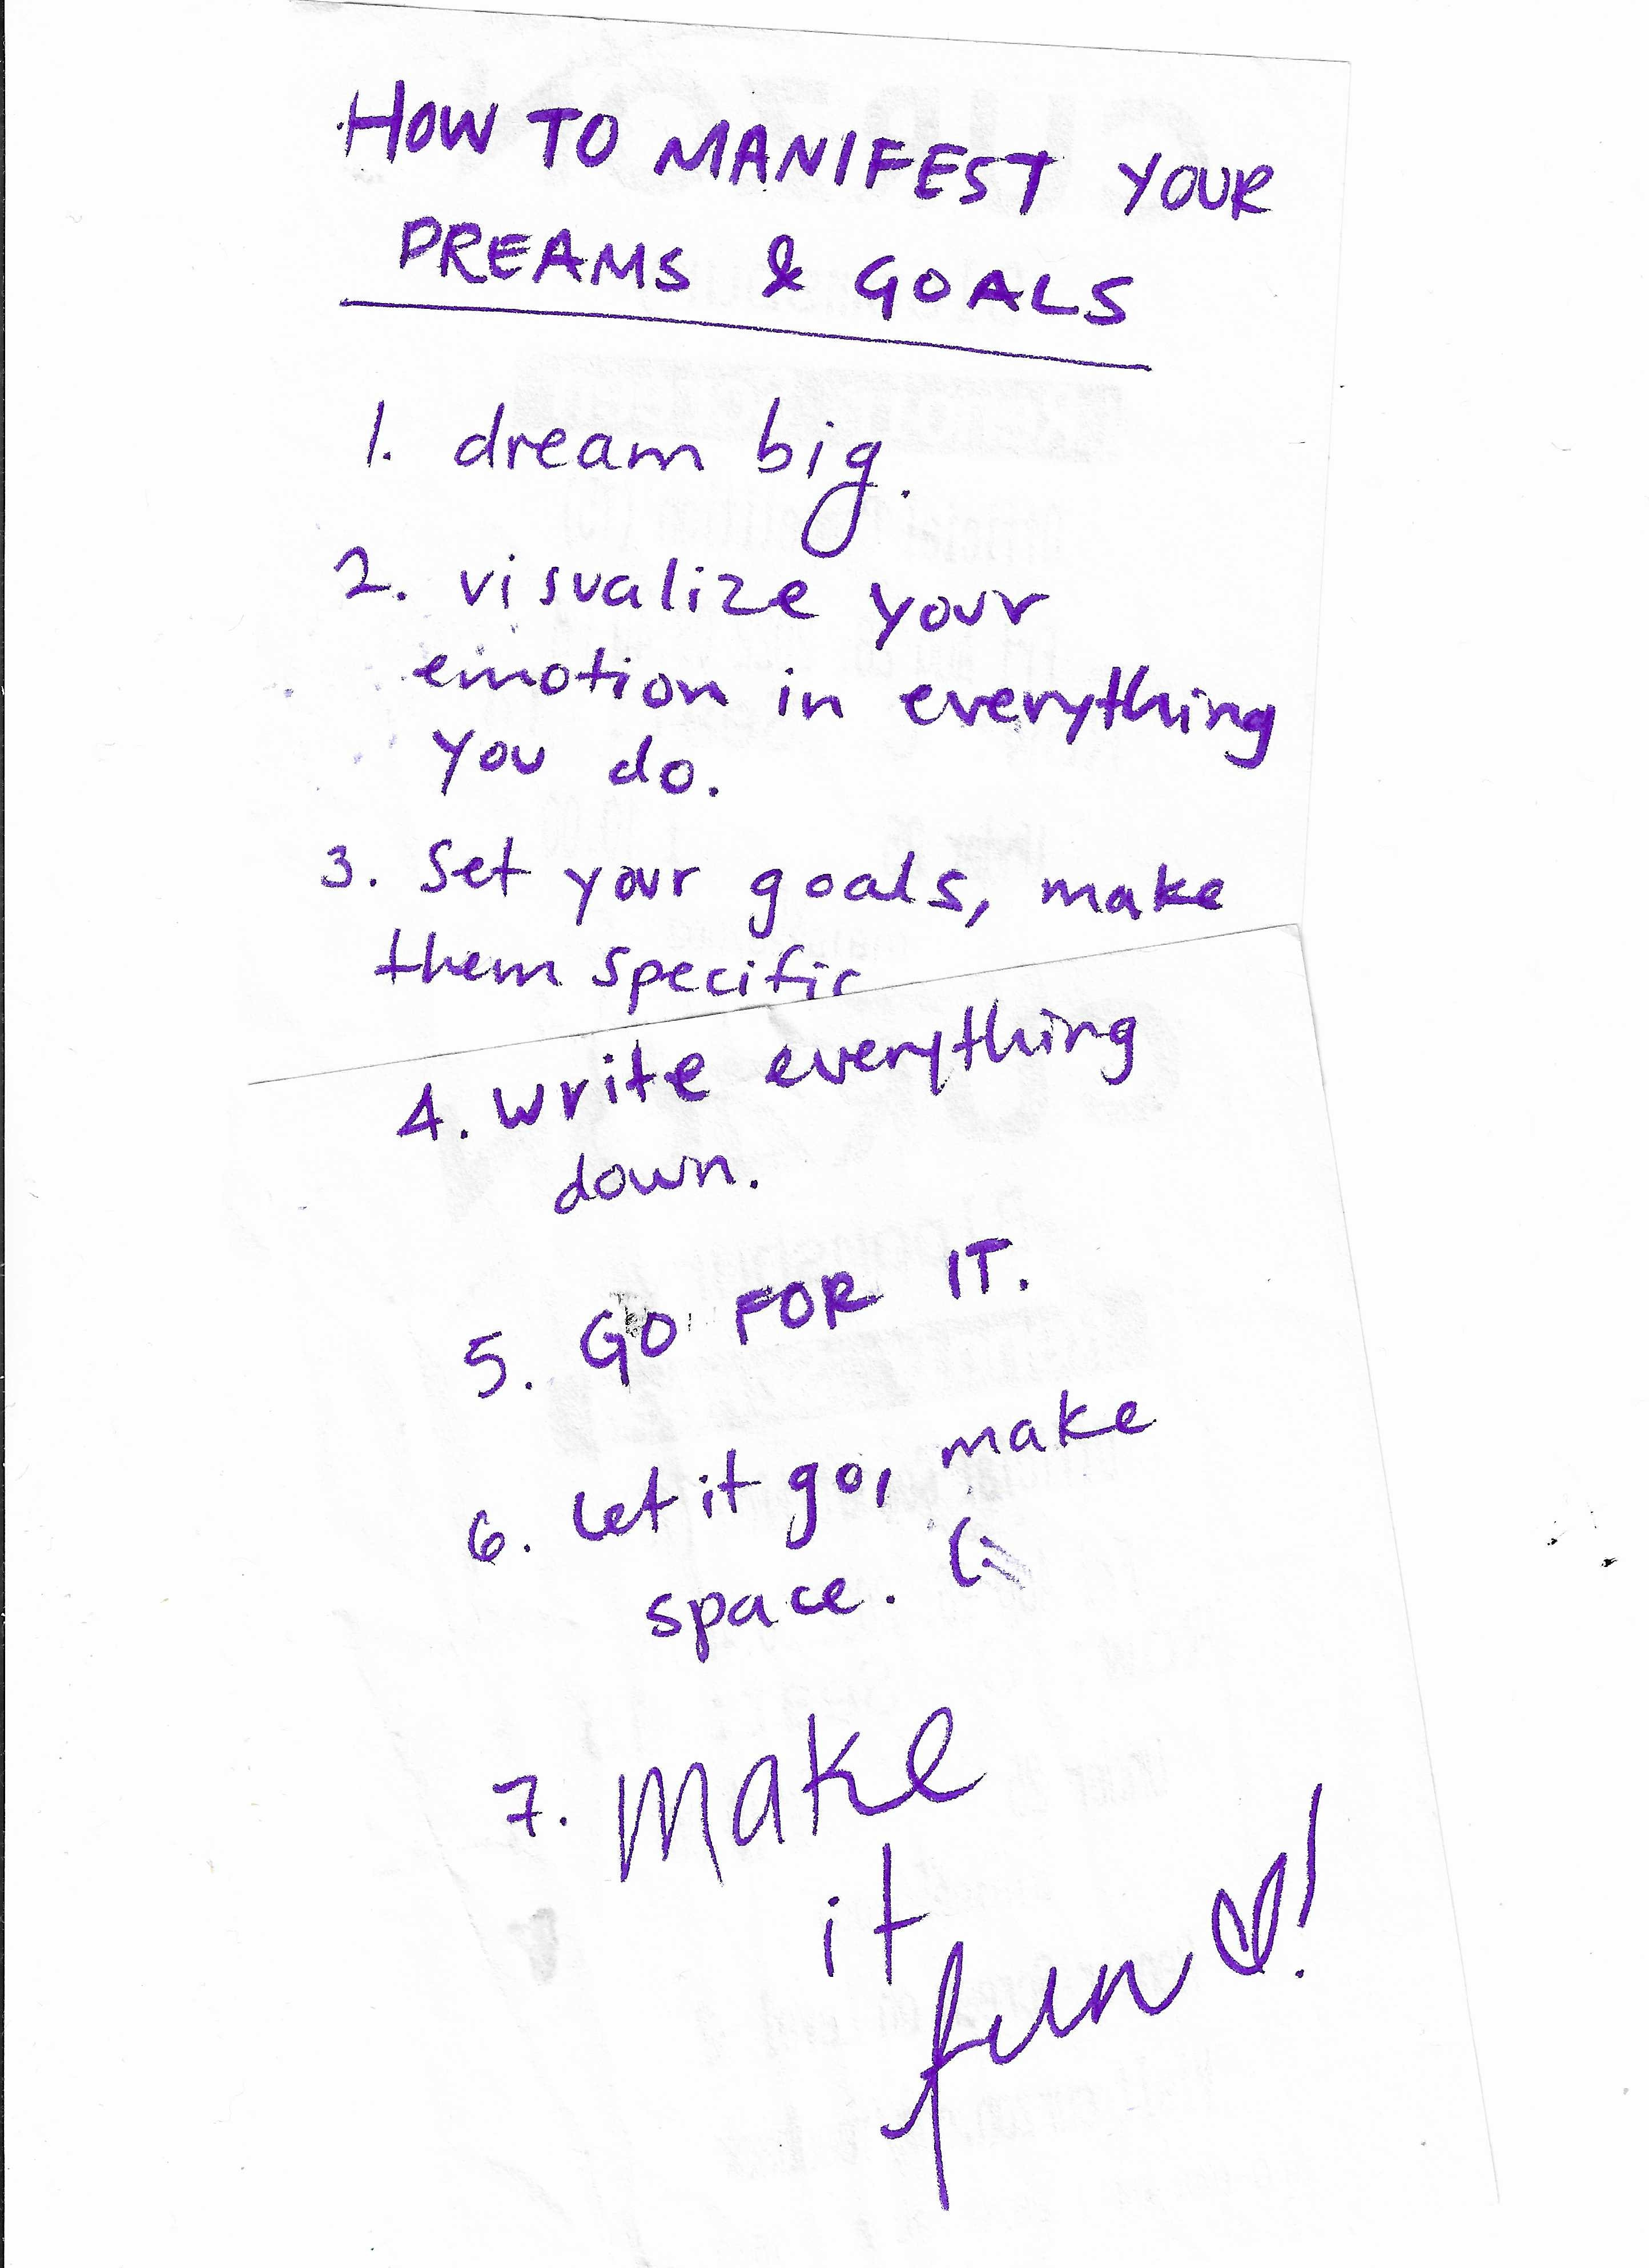 HOW TO MANIFEST YOUR
DREAMS & GOALS
1. dream big.
2. visualize your
emotion in everything
you do.
3. Set your goals, make
them specific
4. write everything
down.
5. GO FOR IT.
6. Let it go, make
space. (:
7. make
it
fun ♡!